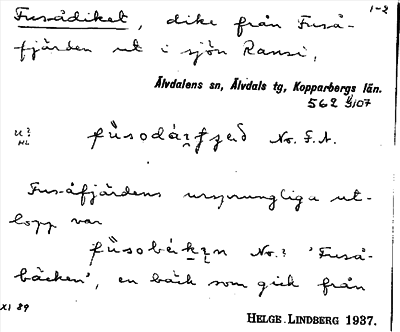 1-2
Fusådiket, dike från Fuså-
fjärden ut i sjön Ransi,
Älvdalens sn, Älvdals tg, Kopparbergs län.
562 4/107
u? No. F. A.
HL
Fusåfjärdens ursprungliga ut-
lopp var
No.: 'Fuså-
bäcken', en bäck som gick från
XI 89
HELGE LINDBERG 1937.